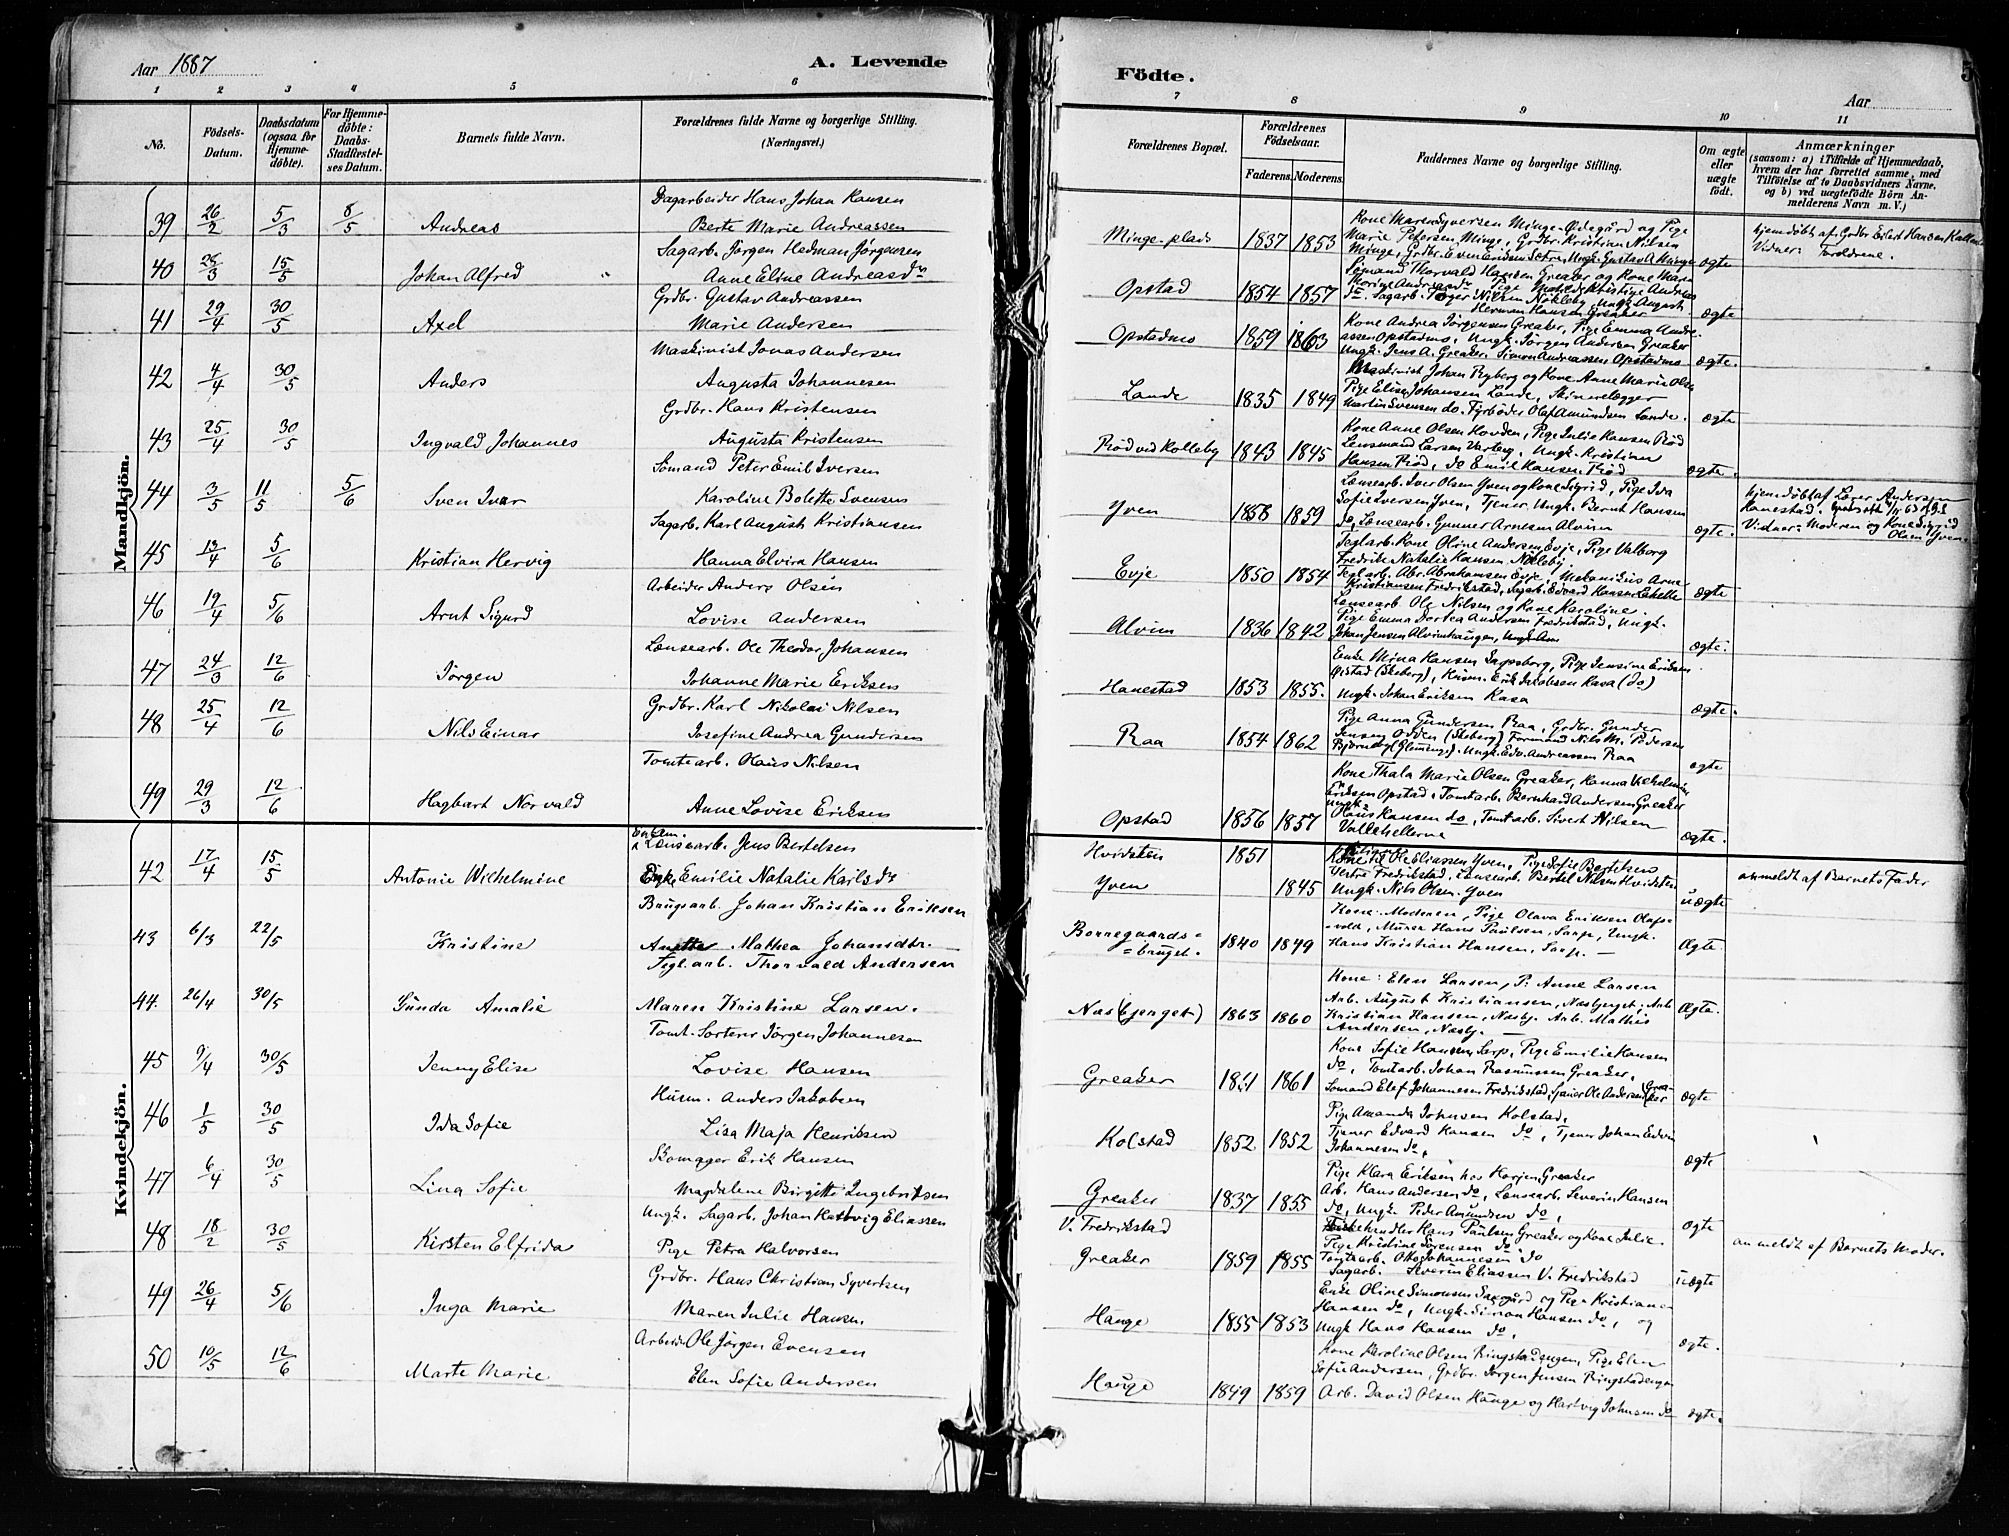 Aar 1887
A. Levende
Födte.
5
Aar
1 2 3 4 5 6 7 8 9 10 11
No.
Födsels-Datum.
Daabsdatum (ogsaa for Hjemmedöbte).
For Hjemmedöbte: Daabs-Stadfæstelses Datum.
Barnets fulde Navn.
Forældrenes fulde Navne og borgerlige Stilling. (Næringsvei.)
Forældrenes Bopæl.
Forældrenes Födselsaar.
Faderens. Moderens.
Faddernes Navne og borgerlige Stilling.
Om ægte eller uægte födt.
Anmærkninger
(saasom: a) i Tilfælde af Hjemmedaab, hvem der har forrettet samme, med Tilföielse af to Daabsvidners Navne, og b) ved uægtefödte Börn Anmelderens Navn m. V.)
Mandkjön.
39 26/2 5/3 8/5 Andreas
Dagarbeider Hans Johan Hansen
Berte Marie Andreassen
Minge-plads 1837 1853
Kone Maren Syversen Minge-Ødegård og Pige
Marie Petersen Minge, Grdbr. Kristian Nilsen
Minge, Grdbr. Even Eriksen Ungk. Gustav A. Minge
ægte
hjemdøbt af Grdbr Eilert Hansen
Vidner: Forældrene.
40 15/5 Johan Alfred
Sagarb. Jørgen Hedman Jørgensen
Anne Eline Andreasdtr
Opstad 1854 1857
Sömand Thorvald Hansen Greaker og Kone Maren
Pige Matilde Andreas
do. Sagarb. Nilsen Nikleby, Ungk. August
Herman Hansen Greaker
ægte
41 29/4 30/5 Axel
Grdbr. Gustav Andreassen
Marie Andersen
Opstadmo 1859 1863
Kone Andrea Jörgensen Greaker, Pige Emma Andre-
assen Opstadmo, Ungk. Jörgen Andersen Greaker
Ungk. Jens A. Greaker. Simon Andreassen Opstadmo
ægte.
42 4/4 30/5 Anders
Maskinist Jonas Andersen
Augusta Johannesen
Lande 1835 1849
Maskinist Johan Ryberg og Kone Anne Marie Olsen
Pige Elise Johansen Lande, Skinnelægger
Martin Svensen do. Fyrböder Olaf Amundsen Lande.
ægte
43 25/4 30/5 Ingvald Johannes
Grdbr. Hans Kristensen
Augusta Kristensen
Rød ved Kolleby 1843 1845
Kone Anne Olsen Hovden, Pige Julie Hansen Rød
Lensmand Larsen Varteig, Ungk. Kristian
Hansen Rød, do Emil Hansen Rød
ægte.
44 3/5 11/5 5/6 Sven Ivar
Sömand Peter Emil Iversen
Karoline Bolette Svensen
Yven 1858 1859
Lænsearb. Iver Olsen Yven og Kone Sigrid, Pige Ida
Sofie Iversen Yven, Tjener, Ungk. Bernt Hansen
do, Lænsearb. Gunner Arnesen Alvim
ægte.
hjemdøbt af Lærer Andersen
Hanestad.
Vidner: Moderen og Kone Sigrid
Olsen Yven
45 13/4 5/6 Kristian Hervig
Sagarb. Karl August Kristiansen
Hanna Elvira Hansen
Evje 1850 1854
Teglarb. Kone Oline Andersen Evje, Pige Valborg
Fredrike Natalie Hansen Nikleby
Teglarb. Abr. Abrahamsen Evje, Mekanikus Arne
Kristiansen Fredrikstad, Sagarb. Edvard Hansen
ægte
46 19/4 5/6 Arnt Sigurd
Arbeider Anders Olsen
Lovise Andersen
Alvim 1836 1842
Lænsearb. Ole Nilsen og Kone Karoline.
Pige Emma Dortea Andersen Fredrikstad, Ungk.
Johan Jensen Alvimhaugen,
ægte.
47 24/3 12/6 Jörgen
Lænsearb. Ole Theodor Johansen
Johanne Marie Eriksen
Hanestad 1853 1855.
Enke Mina Hansen Sarpsborg, Pige Jensine Eriksen
(Skeberg), Husm. Erik Jakobsen Rasa (do)
Ungk. Johan Eriksen Rasa
ægte.
48 25/4 12/6 Nils Einar
Grdbr. Karl Nikolai Nilsen
Josefine Andrea Gundersen
Raa 1854 1862
Pige Anna Gundersen Raa, Grdbr. Gunder
Jensen Odden (Skeberg) Formand Nils M. Pedersen
Bjørneby (Glemmge). Ungk. Edv. Andreassen Raa
ægte
49 29/3 12/6 Hagbart Norvald
Tomtearb. Olaus Nilsen
Anne Lovise Eriksen
Opstad 1856 1857
Kone Thala Marie Olsen Greaker, Hanna Vilhelmine
Eriksen Opstad. Tomtarb. Bernhard Andersen Greaker
Ungk. Olaus Hansen do, Tomtarb. Sivert Nilsen
Valkhellerne
ægte.
Kvindekjön.
42 17/4 15/5 Antonie Wilhelmine
Enkem. Lænsearb. Jens Bertelsen
Enke Emilie Natalie Karlsdtr
Hvidsten 1851
Yven 1845
Kone til Ole Eliassen Yven, Pige Sofie Bertelsen
Vestre Fredrikstad, Lænsearb. Bertel Nilsen Hvidsten
Ungk. Nils Olsen Yven
uægte
anmeldt af Barnets Fader
43 6/3 22/5 Kristine
Brugsarb. Johan Kristian Eriksen
Anette Mathea Johansdtr.
Borregaards-
=bruget. 1840 1849
Kone: Moderen, Pige Olava Eriksen Olafs-
vold, Murer Hans Paulsen, Sarp, Ungk.
Hans Kristian Hansen, Sarp. —
Ægte
44. 26/4 30/5 Gunda Amalie
Teglarb. Thorvald Andersen
Maren Kristine Larsen.
Næs(bjerget) 1863 1860
Kone: Elen Larsen, P: Anne Larsen
Arb. August Kristiansen, Næsbjerget; Arb
Kristian Hansen, Næsbj. Arb. Mathis
Andersen, Næsbj. —
Ægte.
45 9/4 30/5 Jenny Elise
Tomt-Sorterer Jörgen Johannesen
Lovise Hansen
Greaker 1861
Kone Sofie Hansen, Sarp, Pige Emilie Hansen
do, Tomtarb. Johan Rasmussen Greaker,
Sömand Elef Johannesen Fredrikstad, Tjener Ole Andersen Greaker
ægte
46 1/5 30/5 Ida Sofie
Husm. Anders Jakobsen
Lisa Maja Henriksen
Kolstad 1852 1852
Pige Amanda Johnsen Kolstad,
Tjener Edvard Hansen do, Tjener Johan Edvin
Johannesen do,
ægte
47 6/4 30/5 Lina Sofie
Skomager Erik Hansen
Magdalene Birgitte Ingebriktsen
Greaker 1837 1855
Pige Klara Eriksen hos Horjen Greaker
Arb. Hans Andersen do, Lænsearb. Severin Hansen
do, Ungk. Peder Amundsen do,
ægte
48 18/2 30/5 Kirsten Elfrida
Ungk. Sagarb. Johan Hartvig Eliassen
Pige Petra Halvorsen
V. Fredrikstad
Greaker 1859 1855
Fiskehandler Hans Paulsen Greaker og Kone Julie
Pige Kristine Sörensen do
Tomtarb. Otto Johannesen do
Sagarb. Severin Eliassen V. Fredrikstad
uægte
anmeldt af Barnets Moder.
49 26/4 5/6 Inga Marie
Grdbr. Hans Christian Syvertsen
Maren Julie Hansen
Hauge 1855 1853
Enke Oline Simonsen og Pige Kristiane
Hansen do, Ungk. Simon Hansen do, og
Ungk Hans Hansen do,
ægte.
50 10/5 12/6 Marte Marie
Arbeider Ole Jörgen Evensen
Elen Sofie Andersen
Hauge 1849 1859
Kone Karoline Olsen Ringstadengen, Pige Elen
Sofie Andersen, Grdbr. Jörgen Jensen Ringstadengen
Arb. David Olsen Hauge og Hartvig Johnsen do
ægte.